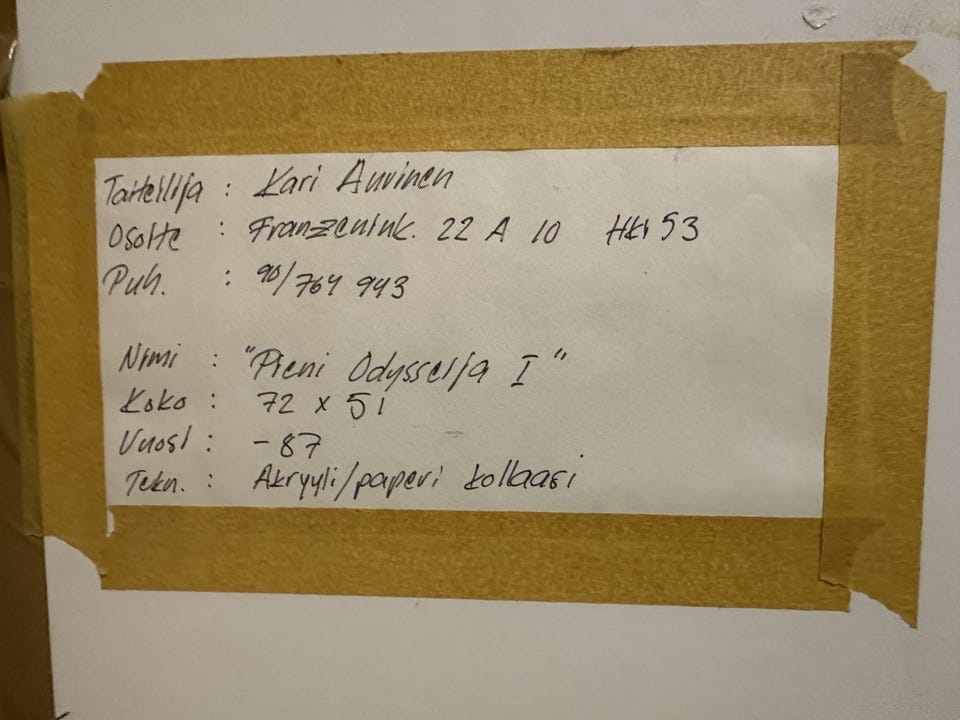 Taiteilija : Kari Auvinen
Osoite : Franzenink. 22 A 10 Hki 53
Puh. : 90/764 943
Nimi : "Pieni Odysseija I"
Koko : 72 x 51
Vuosi : -87
Tekn. : Akryyli/paperi kollaasi